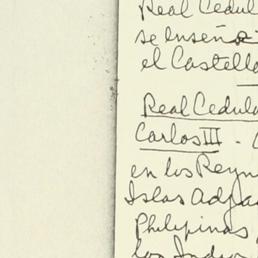 Real Cedul
se enseñe
el Castella
Real Cedula
Carlos III -
en los Reyn
Islas Adja
Philipinas
los Indios